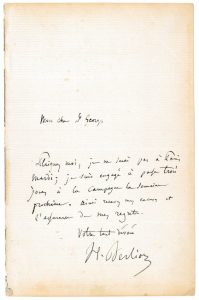 Mon cher M. George
Plaignez moi, je ne suis pas à Paris
mardi; je suis engagé à passer trois
jours à la campagne la semaine
prochaine. Ainsi recevez mes excuses et
l'assurance de mes regrets.
Votre tout dévoué
H. Berlioz